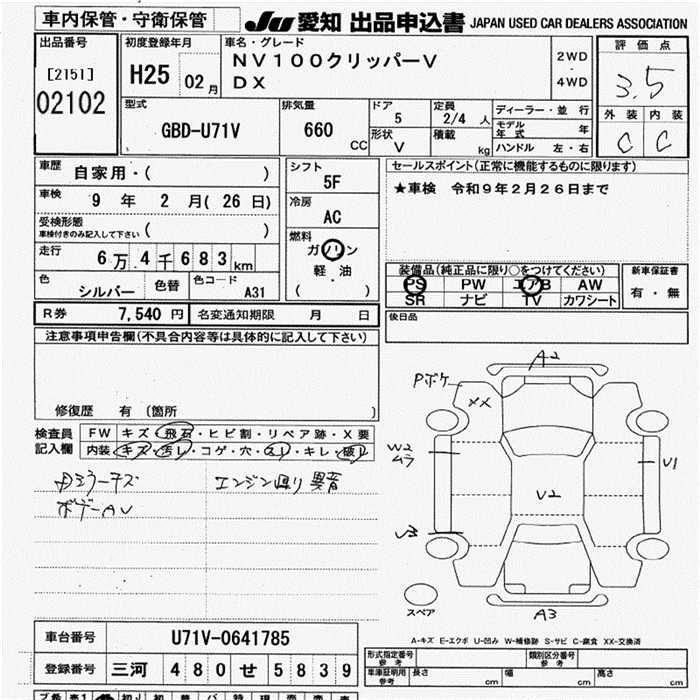 車内保管・守衛保管
JU 愛知 出品申込書 JAPAN USED CAR DEALERS ASSOCIATION
出品番号
[2151]
02102
初度登録年月
H25 02月
車名・グレード
NV100クリッパーV
DX
2WD
・
4WD
評価点
3.5
外装 内装
C C
型式
GBD-U71V
排気量
660 CC
ドア
5
形状
V
定員
2/4 人
積載
kg
ディーラー・並行
モデル年式 年
ハンドル 左・右
車歴
自家用・( )
車検
9 年 2 月 (26 日)
受検形態
車検付きのみ記入して下さい ( )
走行
6万4千683km
色
シルバー
色替
色コード
A31
シフト
5F
冷房
AC
燃料
ガソリン
軽・油
( )
セールスポイント(正常に機能するものに限ります)
★車検 令和9年2月26日まで
装備品(純正品に限り○をつけてください)
PS PW エアB AW
SR ナビ TV カワシート
新車保証書
有・無
後日品
R券 7,540円 名変通知期限 月 日
注意事項申告欄(不具合内容等は具体的に記入して下さい)
修復歴 有 (箇所 )
検査員
記入欄
FW キズ・飛石・ヒビ割・リペア跡・X要
内装 キズ・汚レ・コゲ・穴・スレ・キレ・破レ
ボデーAU
エンジン回り 異音
A2
Pボケ
XX
W2
ムラ
U1
U2
U3
スペア
A3
A-キズ E-エクボ U-凹み W-補修跡 S-サビ C-腐食 XX-交換済
車台番号 U71V-0641785
登録番号 三河 480 せ 5839
形式指定番号
参考
類別区分番号
参考
車庫証明用
参考
長さ cm 幅 cm 高さ cm